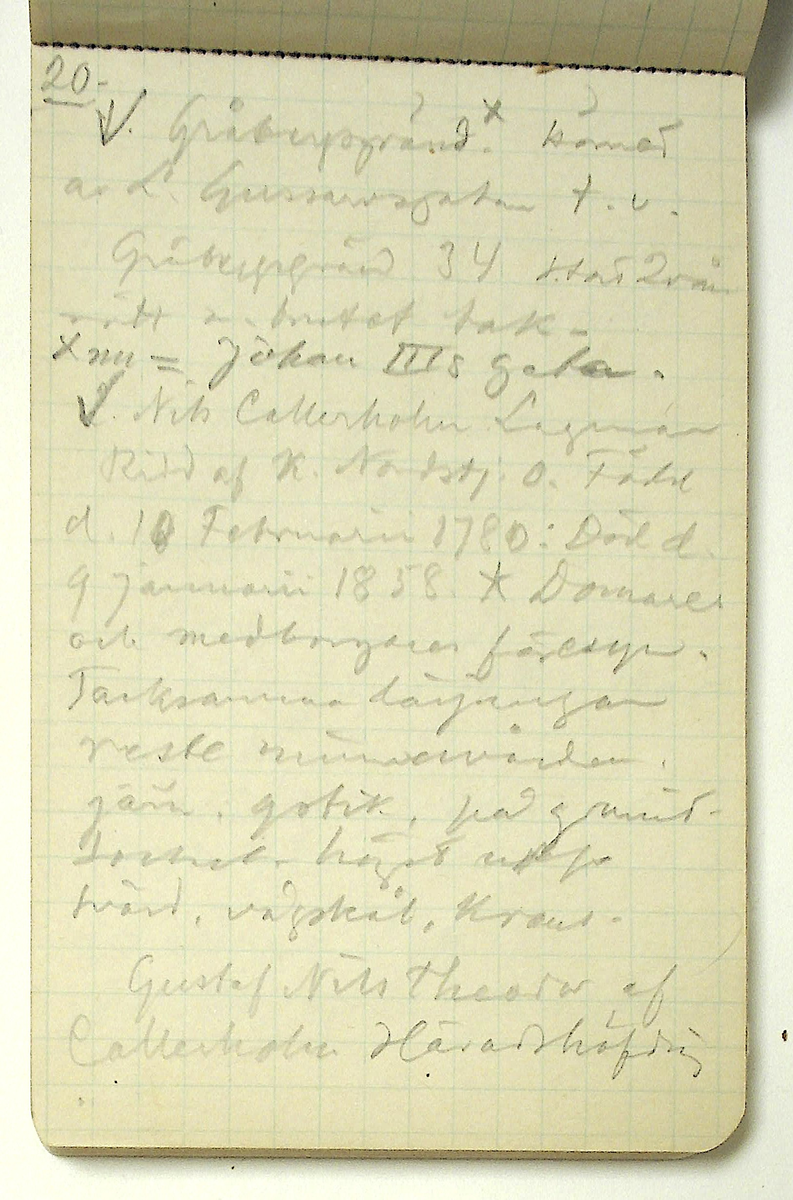 20.
V. Gråbergsgränd.x hörnet
av L. Gussarvsgatan t. v.
Gråbergsgränd 34 Hus 2 vån
rött m. brutet tak -
x nu = Johan IIIs gata.
V. Nils Callerholm Lagman
Ridd af K. Nordstj. O. Född
d. 10 Februarii 1780: Död d.
9 januarii 1858 * Domares
och medborgares föresyn.
Tacksamma lärjungar
reste minnesvården.
järn, gotik, på granit-
sockel - högst uppe
svärd, vågskål, Krans -
Gustaf Nils Theodor af
Callerholm Häradshöfding